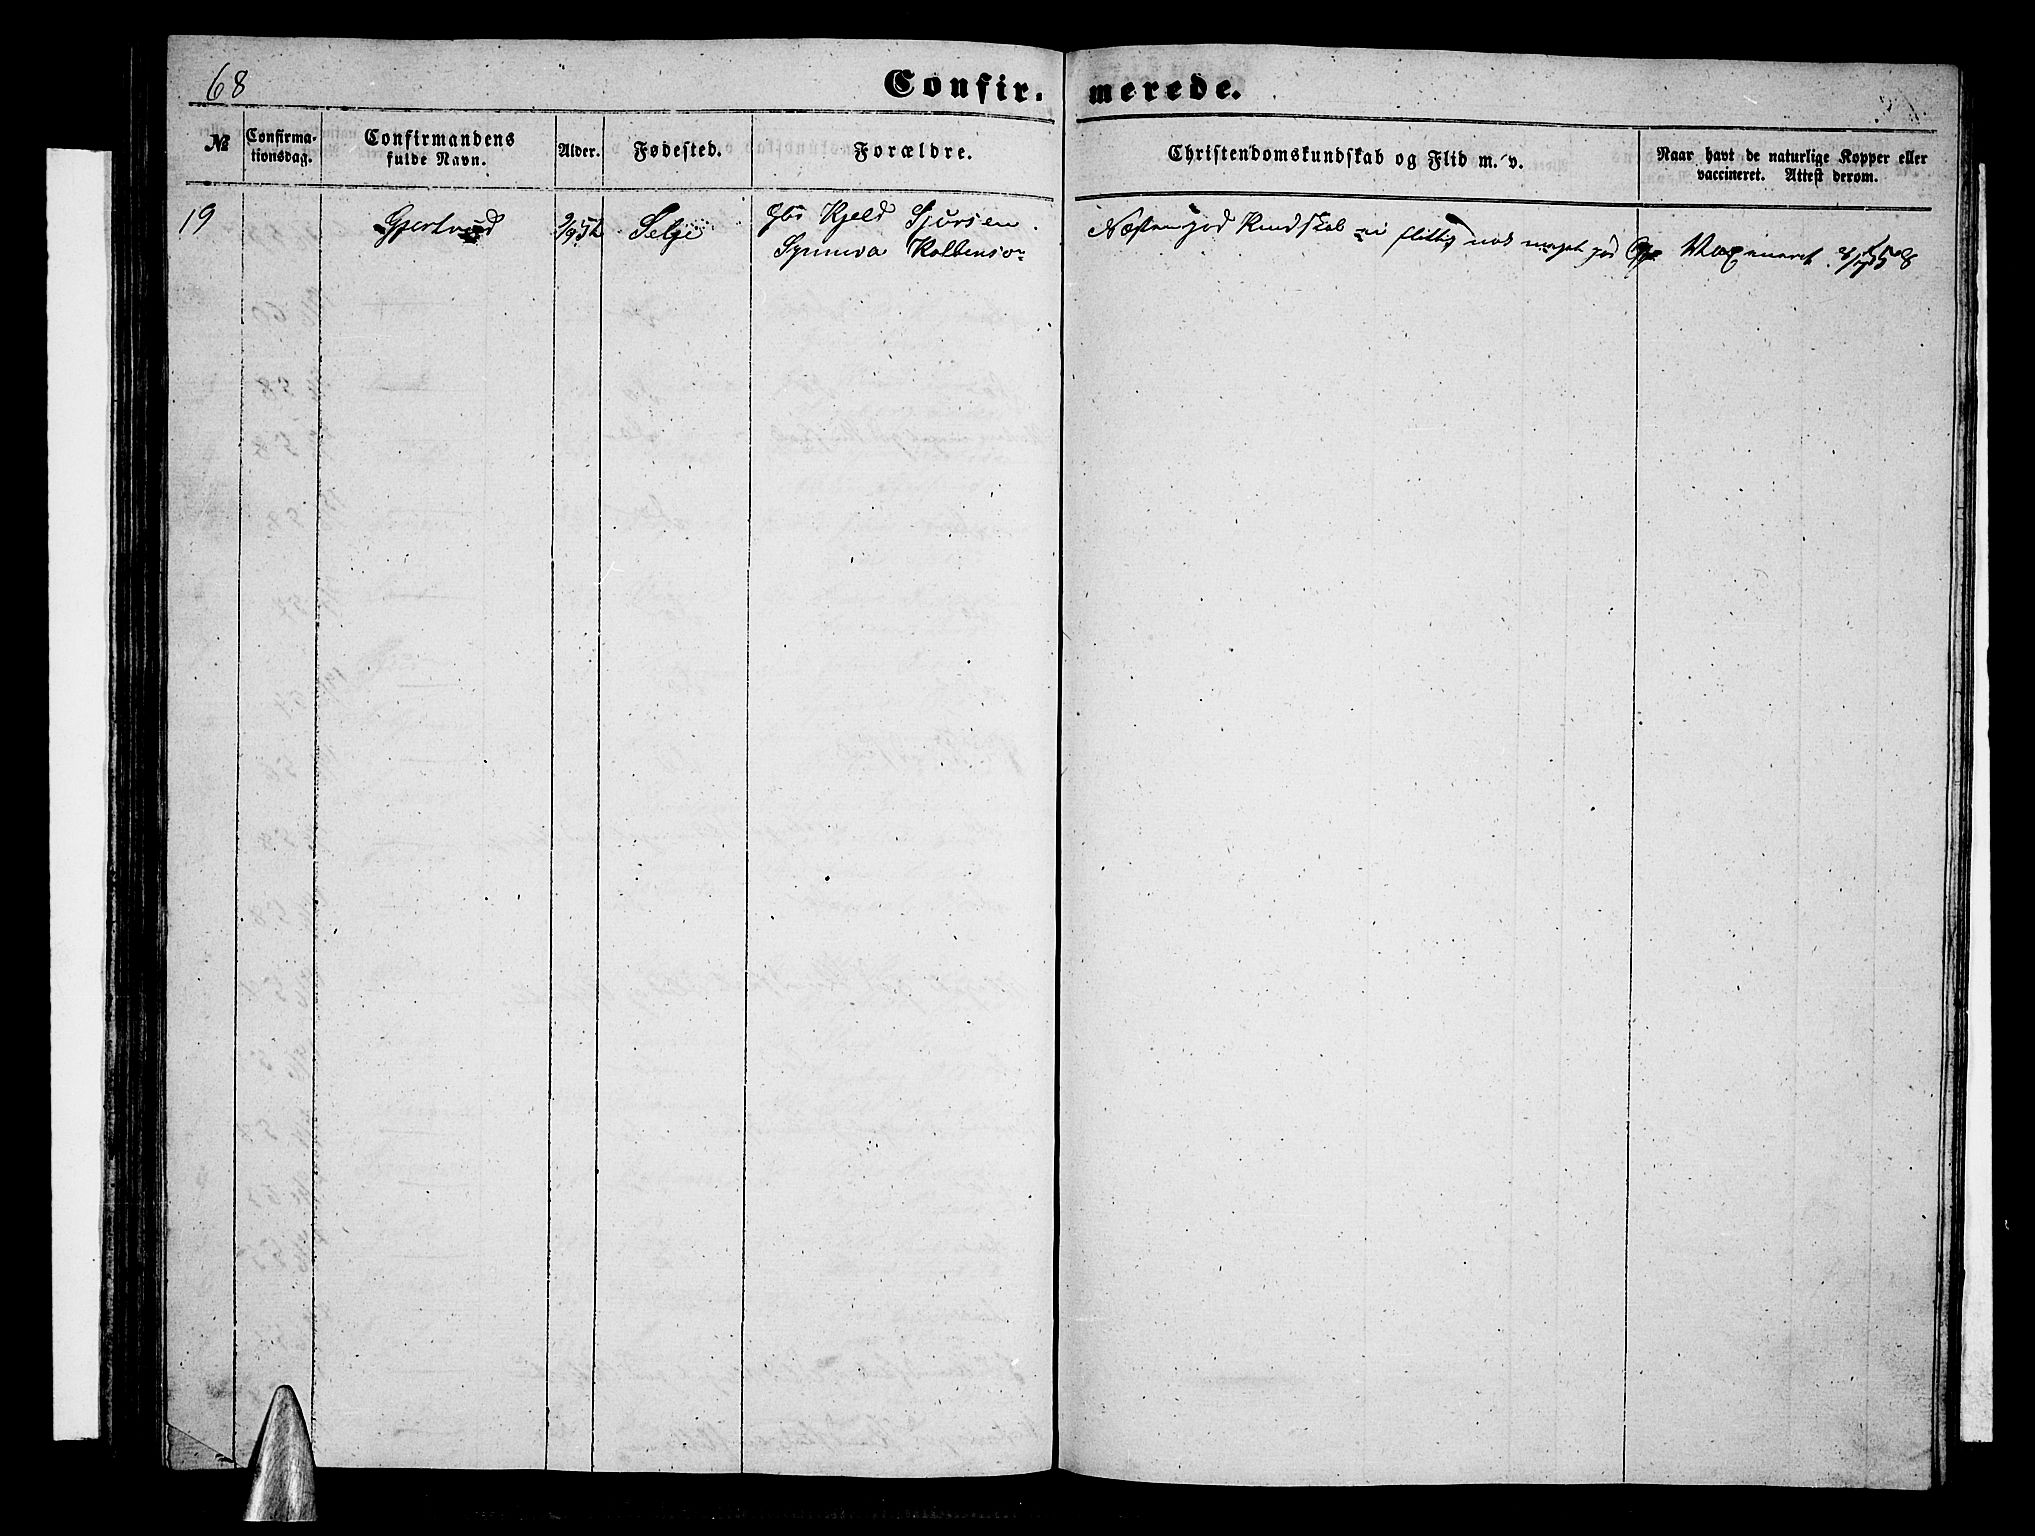 68
Confir- merede.
№
Confirma-
tionsdag.
Confirmandens
fulde Navn.
Alder.
Fødested.
Forældre.
Christendomskundskab og Flid m. v.
Naar havt de naturlige Kopper eller
vaccineret. Attest derom.
19 Gjertrud Selje Kjeld Sjursen. Næsten god Kundskab flittig meget god
Synneva Kolbens